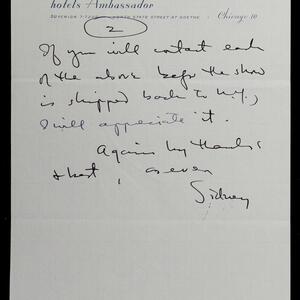 hotels Ambassador
SUPERIOR 7-7200 NORTH STATE STREET AT GOETHE • Chicago 10
2
If you will contact each
of the above before the show
is shipped back to N.Y.,
I will appreciate it.
Again my thanks
& best, as ever
Sidney